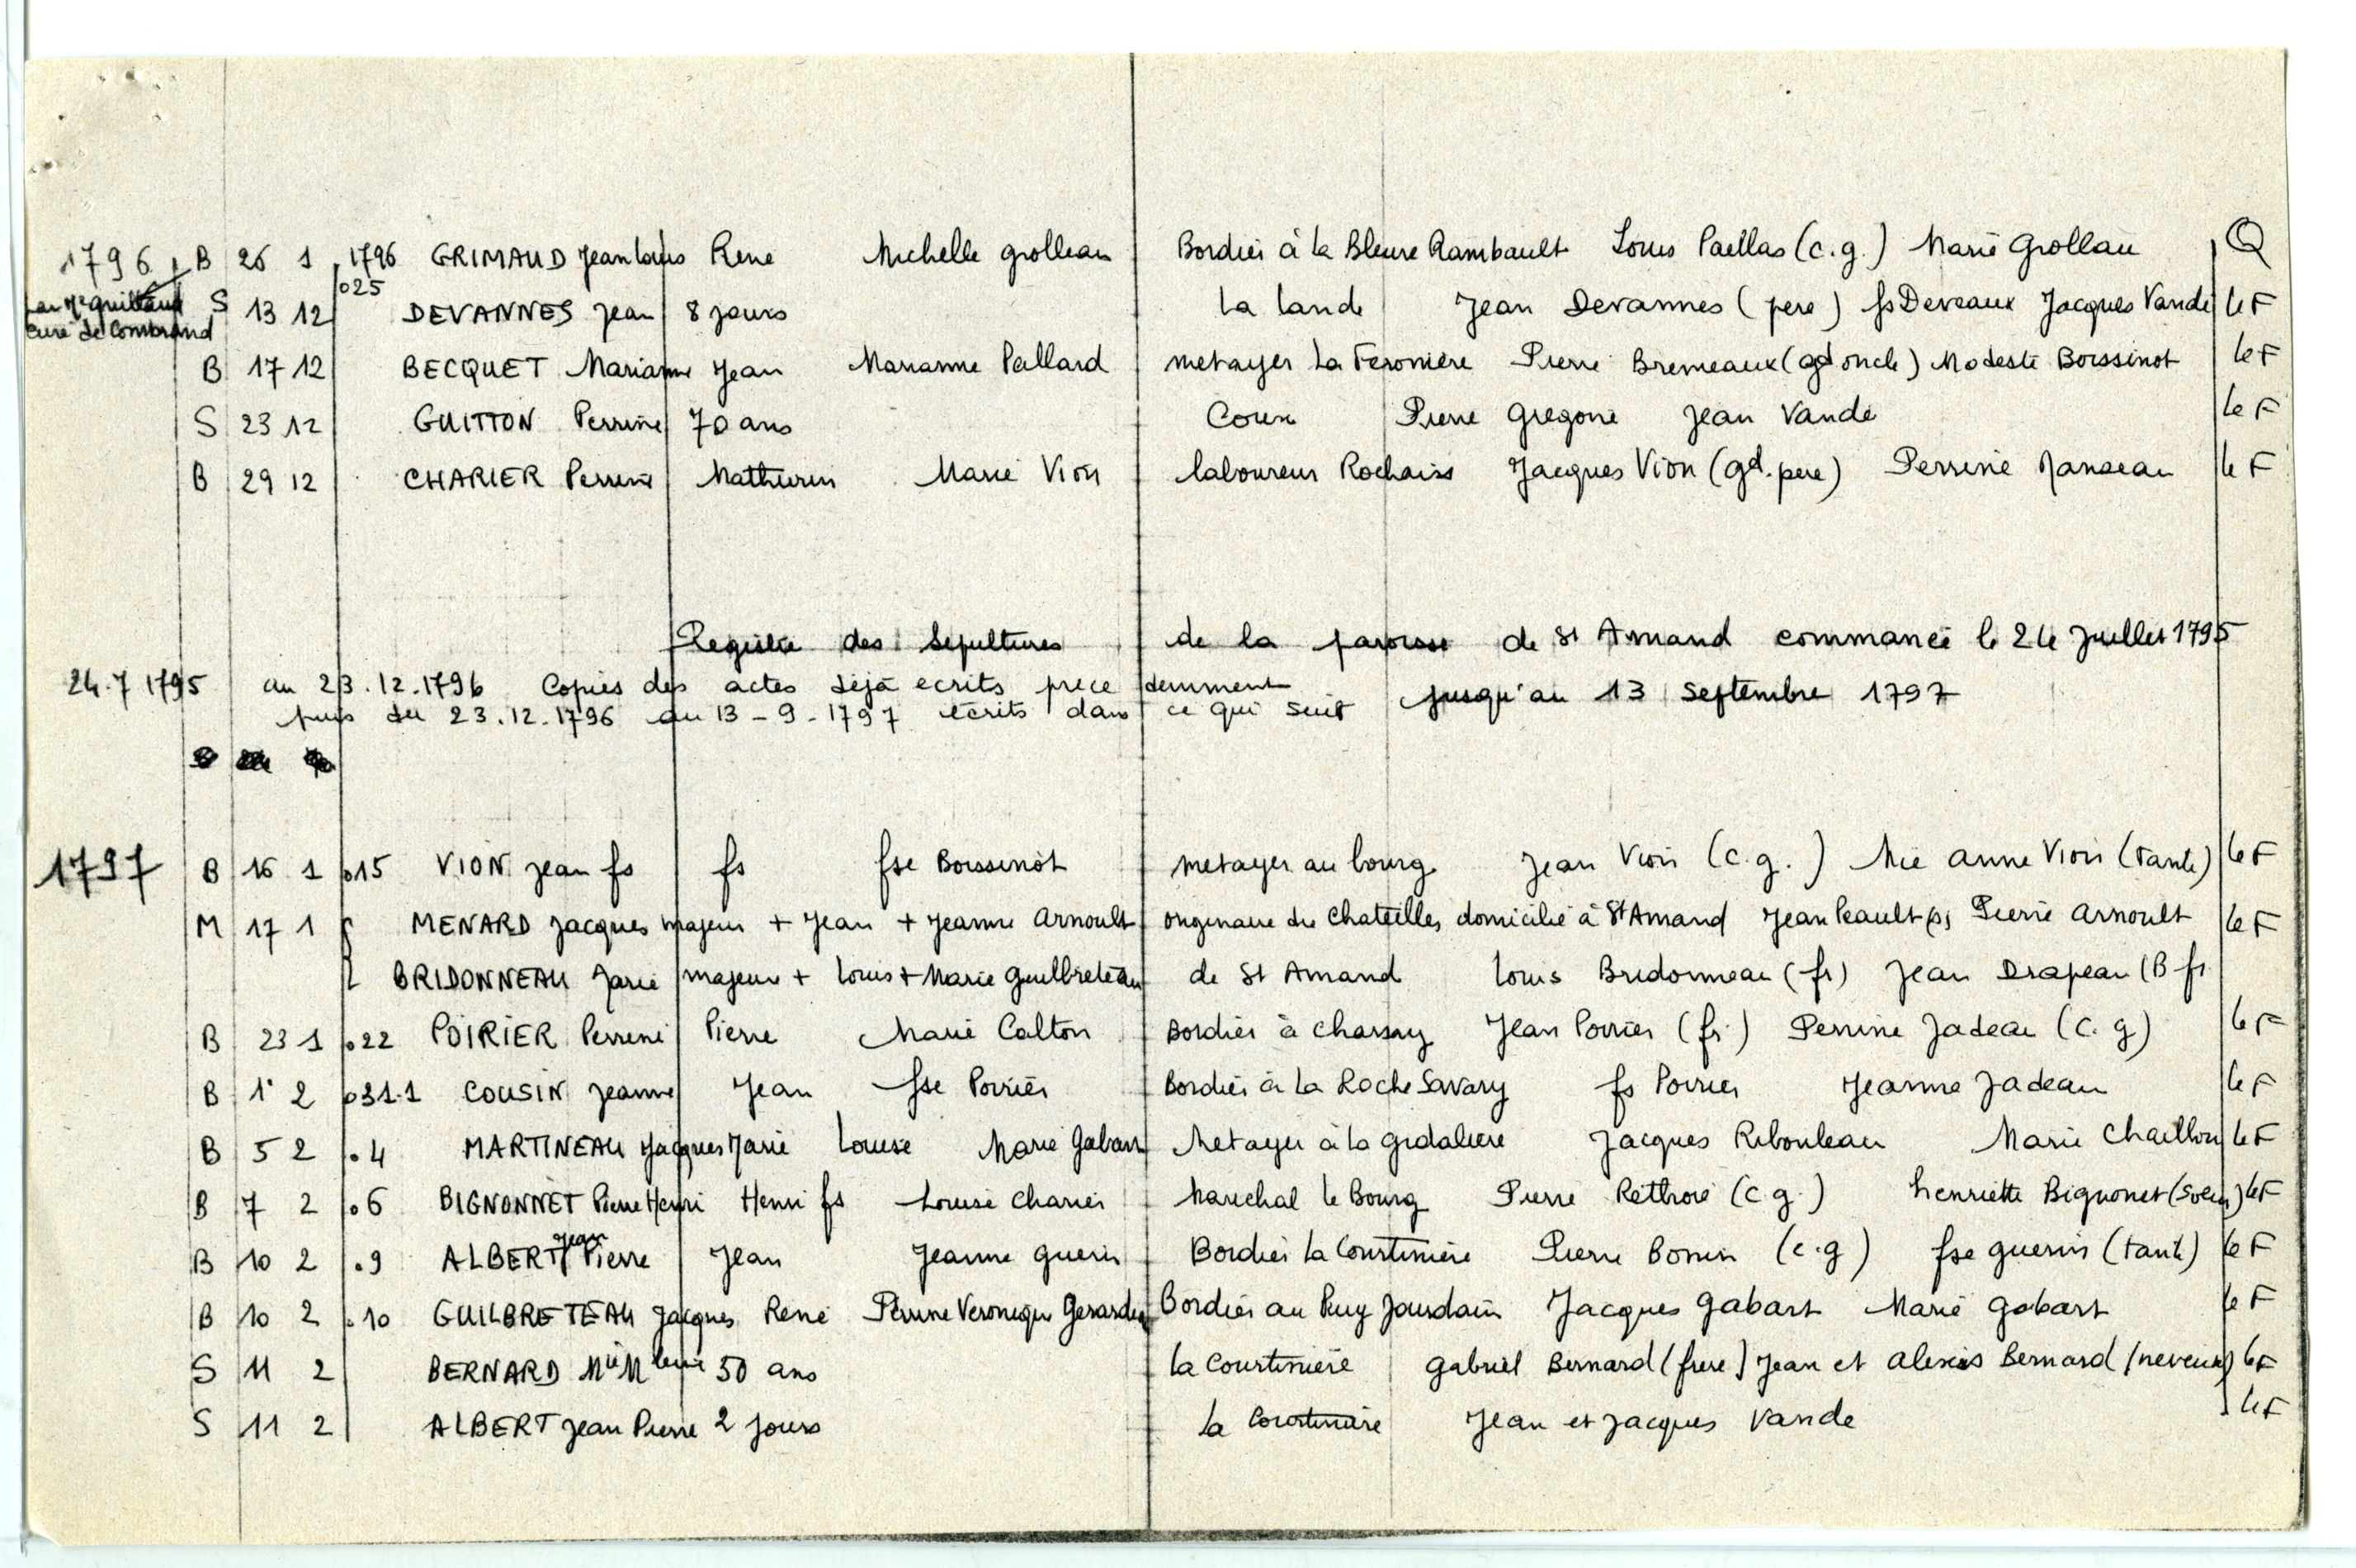 1796 B 26 1 1796 GRIMAUD Jean Louis René Michelle grolleau Bordier à la Bleure Rambault Louis Paellas (c.g.) Marie Grollau Q
o25
par Mr guillaud S 13 12 DEVANNES Jean 8 jours la lande Jean Devannes (pere) fs Deveaux Jacques Vande le F
curé de Combrand
B 17 12 BECQUET Marianne Jean Marianne Pallard metayer la Feroniere Pierre Bremeaux (gd oncle) Modeste Boissinot le F
S 23 12 GUITTON Perrine 70 ans Coux Pierre Gregoire Jean Vande le F
B 29 12 CHARIER Perrine Mathurin Marie Vion laboureur Rochais Jacques Vion (gd. pere) Perrine Janseau le F
Registre des Sepultures de la paroisse de St Amand commancé le 24 Juillet 1795
24.7 1795 au 23.12.1796 Copies des actes déjà ecrits précedemment jusqu'au 13 Septembre 1797
puis du 23.12.1796 au 13-9-1797 écrits dans ce qui suit
1797 B 16 1 o15 VION Jean fs fs fse Boissinot metayer au bourg Jean Vion (c.g.) Mie anne Vion (tante) le F
M 17 1 MENARD Jacques majeur + Jean + Jeanne Arnoult originaire de Chatelles domicilié à St Amand Jean Peault ps Pierre Arnoult le F
BRIDONNEAU Marie majeure + Louis + Marie Guilbreteau de St Amand Louis Bridonneau (fr) Jean Drapeau (B fr
B 23 1 o22 POIRIER Perrine Pierre Marie Calton Bordier à Charsay Jean Poirier (fr.) Perrine Jadeau (c.g) le F
B 1° 2 o31.1 COUSIN Jeanne Jean fse Poirier Bordier à la Roche Savary fs Poirier Jeanne Jadeau le F
B 5 2 .4 MARTINEAU Jacques Marie Louise Marie Gabart Metayer à la gidaliere Jacques Ribouleau Marie Chaillou le F
B 7 2 .6 BIGNONNET Pierre Henri Henri fs Louise Charier Marechal le Bourg Pierre Rethoré (c g.) henriette Bignonet (soeur) le F
B 10 2 .9 ALBERT Jean Pierre Jean Jeanne guerin Bordier la Courtiniere Pierre Bonin (c.g) fse guerin (tante) le F
B 10 2 .10 GUILBRETEAU Jacques René Perrine Veronique Gerardeau Bordier au Puy Jourdain Jacques Gabart Marie Gabart le F
S 11 2 BERNARD Mie Mleine 50 ans la Courtiniere Gabriel Bernard (frere) Jean et Alexis Bernard (neveux) le F
S 11 2 ALBERT Jean Pierre 2 jours la Courtiniere Jean et Jacques Vande le F